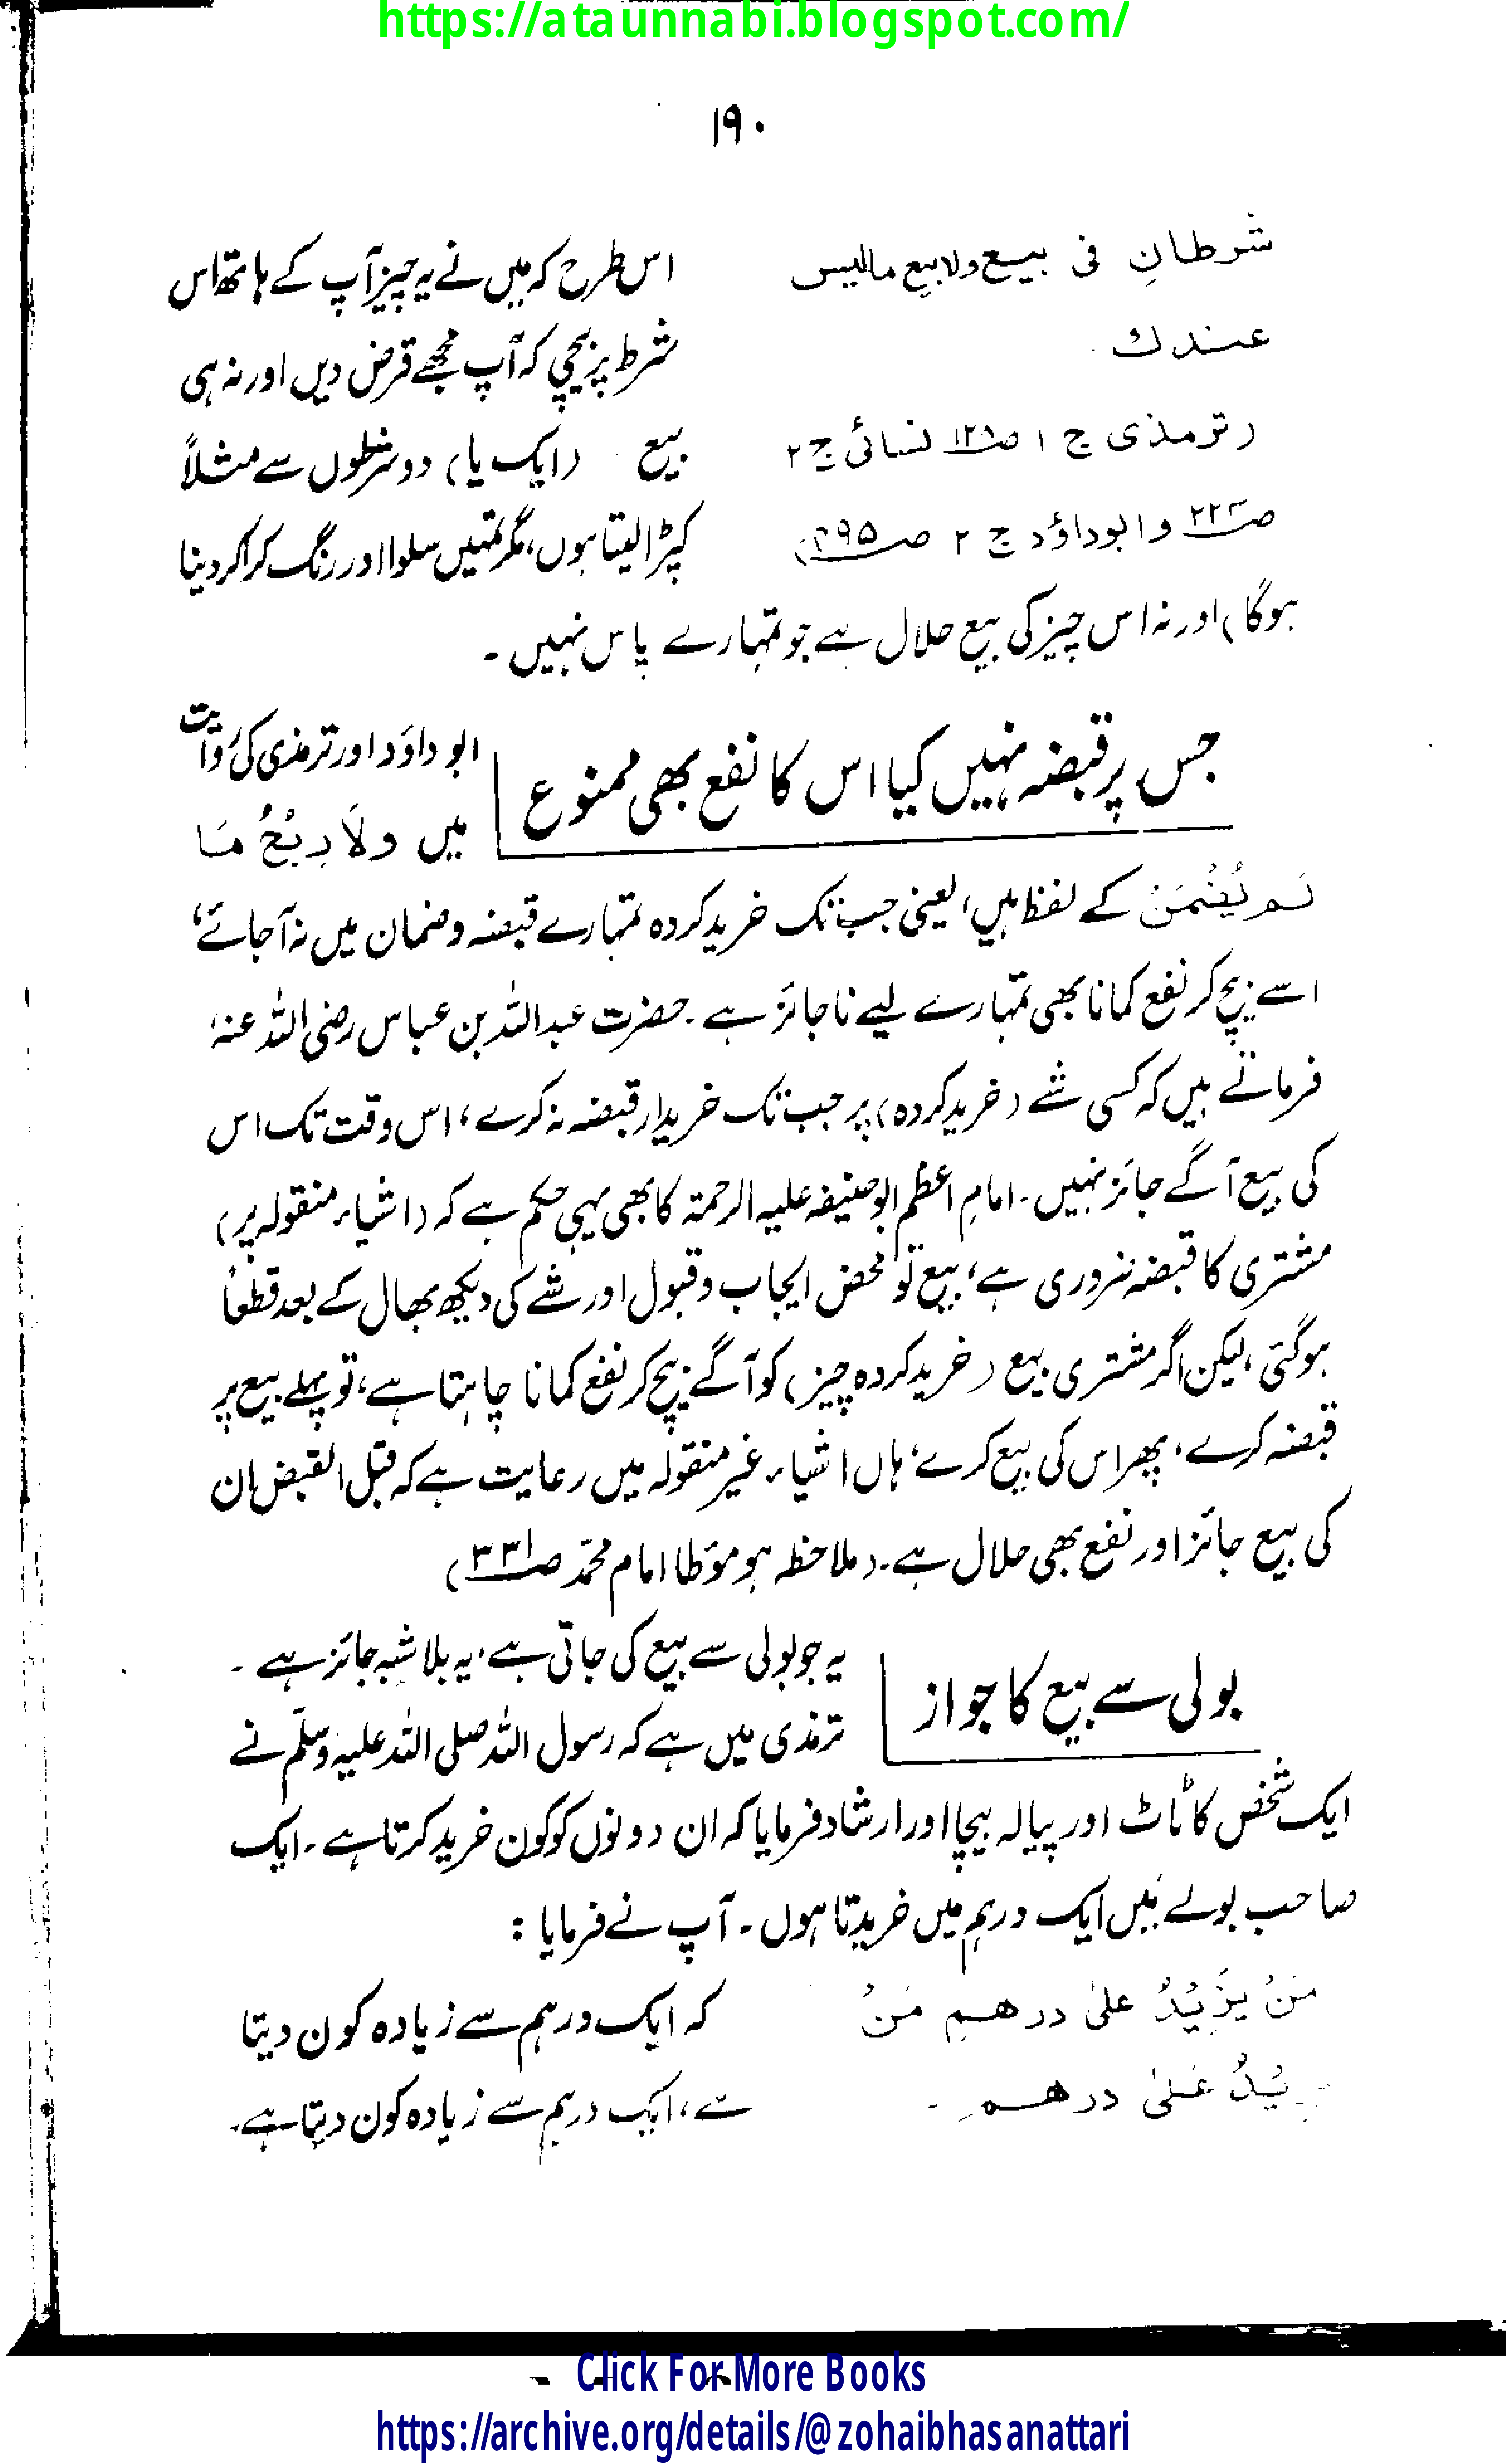 https://ataunnabi.blogspot.com/
۱۹۰
شرطانِ فی بیع ولا بیع مالیس
عندك
(ترمذی ج ۱ ص۱۲۸ نسائی ج ۲
ص وابوداؤد ج ۲ ص
اس طرح کہ میں نے یہ چیز آپ کے ہاتھ اس
شرط پر بیچی کہ آپ مجھے قرض دیں اور نہ ہی
بیع (ایک یا) دو شرطوں سے مثلاً
کپڑا لیتا ہوں، مگر تمہیں سلوا اور رنگ کرا کر دینا
ہوگا) اور نہ اس چیز کی بیع حلال ہے جو تمہارے پاس نہیں۔
جس پر قبضہ نہیں کیا اس کا نفع بھی ممنوع
ابو داؤد اور ترمذی کی روایت
میں ولَا رِبْحُ مَا
لَم یُضْمَنْ کے لفظ ہیں، یعنی جب تک خرید کردہ تمہارے قبضہ و ضمان میں نہ آجائے،
اسے بیچ کر نفع کمانا بھی تمہارے لیے ناجائز ہے۔ حضرت عبداللہ بن عباس رضی اللہ عنہ
فرماتے ہیں کہ کسی شے (خرید کردہ) پر جب تک خریدار قبضہ نہ کرے، اس وقت تک اس
کی بیع آگے جائز نہیں۔ امام اعظم ابوحنیفہ علیہ الرحمۃ کا بھی یہی حکم ہے کہ (اشیاء منقولہ پر)
مشتری کا قبضہ ضروری ہے، بیع تو محض ایجاب و قبول اور شے کی دیکھ بھال کے بعد قطعاً
ہوگئی، لیکن اگر مشتری بیع (خرید کردہ چیز) کو آگے بیچ کر نفع کمانا چاہتا ہے، تو پہلے بیع پر
قبضہ کرے، پھر اس کی بیع کرے، ہاں اشیاء غیر منقولہ میں رعایت ہے کہ قبل القبض ان
کی بیع جائز اور نفع بھی حلال ہے۔ (ملاحظہ ہو مؤطا امام محمّد ص۳۳۱)
بولی سے بیع کا جواز
یہ جو بولی سے بیع کی جاتی ہے، یہ بلا شبہ جائز ہے۔
ترمذی میں ہے کہ رسول اللہ صلی اللہ علیہ وسلّم نے
ایک شخص کا ٹاٹ اور پیالہ بیچا اور ارشاد فرمایا کہ ان دونوں کو کون خرید کرتا ہے۔ ایک
صاحب بولے مَیں ایک درہم میں خریدتا ہوں۔ آپ نے فرمایا :
مَنْ یزِیْدُ علیٰ درهمِ مَنْ
یزیْدُ عَلیٰ درهمِ۔
کہ ایک درہم سے زیادہ کون دیتا
ہے، ایک درہم سے زیادہ کون دیتا ہے۔
Click For More Books
https://archive.org/details/@zohaibhasanattari